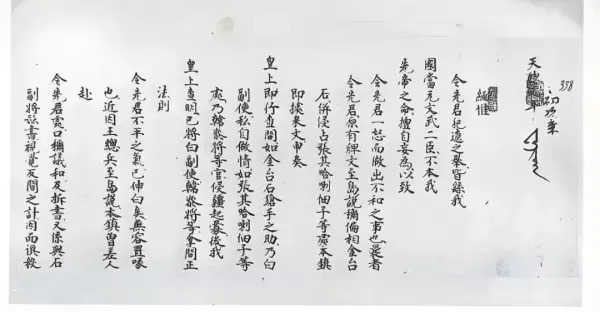 338
天聰 年
令先君犯遼之舉皆緣我
國當先文武二臣不本我
先帝之命擅自妄為以致
令先君一怒而做出不和之事也曩者
令先君原有 文至島說稱偏相金台
石併侵占張其哈喇佃子等處本鎮
即據來文申奏
皇上即行查問如金台石鎗手之助乃白
副使私自做情如張其哈喇佃子等
處乃韓叅將等官侵疆起釁後我
皇上查明已將白副使韓叅將等拿問正
法則
令先君不平之氣已伸白矣無容置喙
也近因王總兵至島說本鎮曾差人
赴
令先君處口稱議和及拆書又係與石
副將 書視覺反間之計因而俱